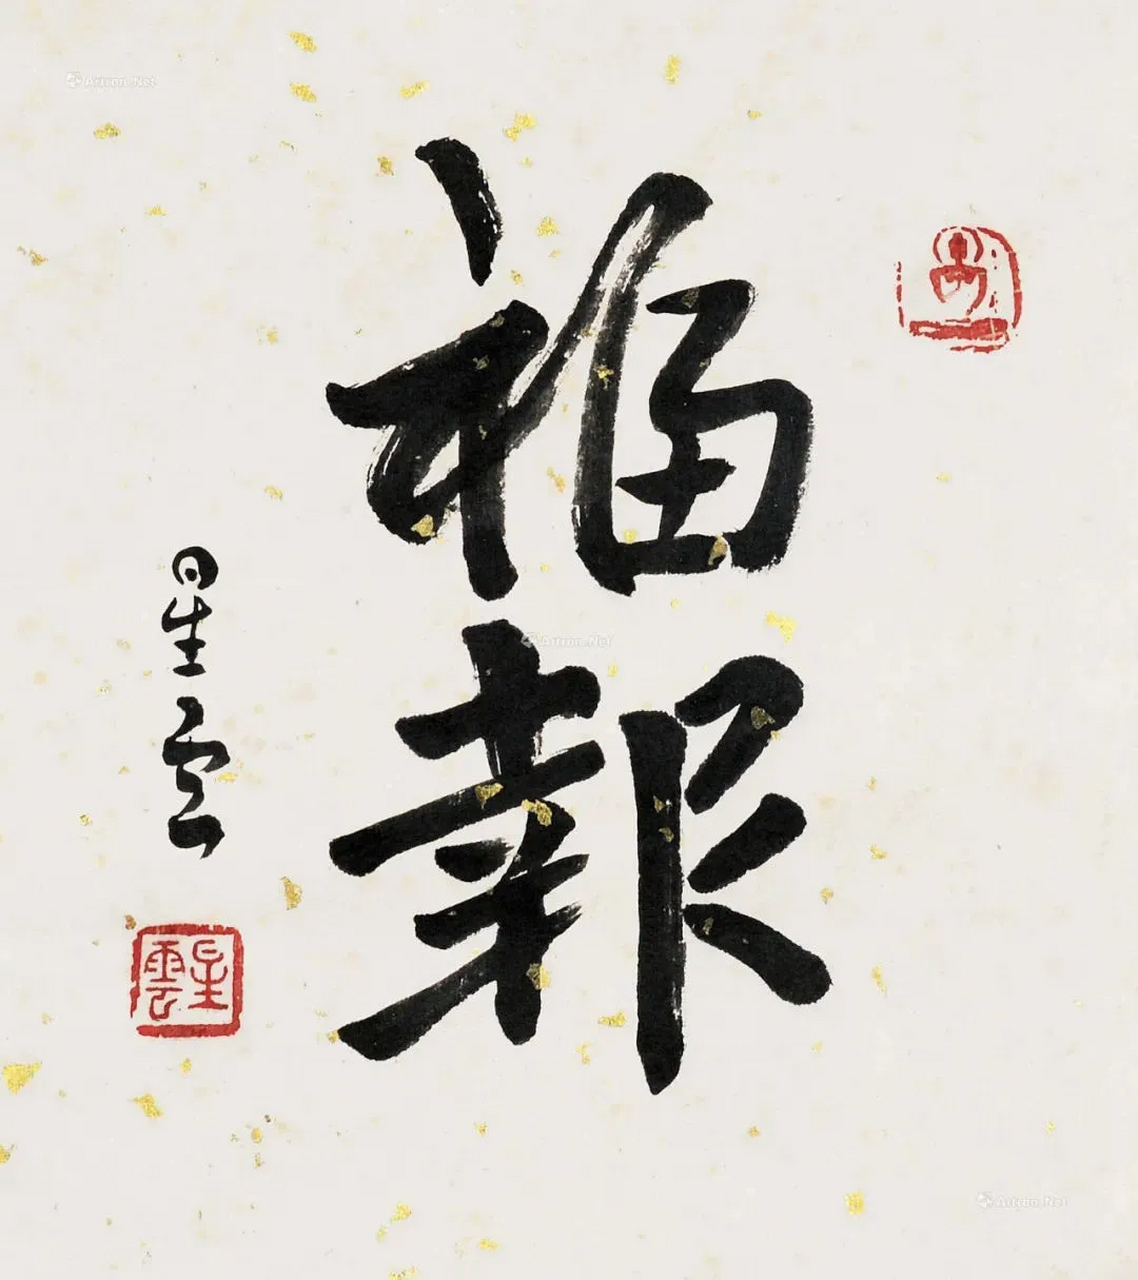 福報
星雲
星雲
Artron.Net
Artron.Net
Artron.Net